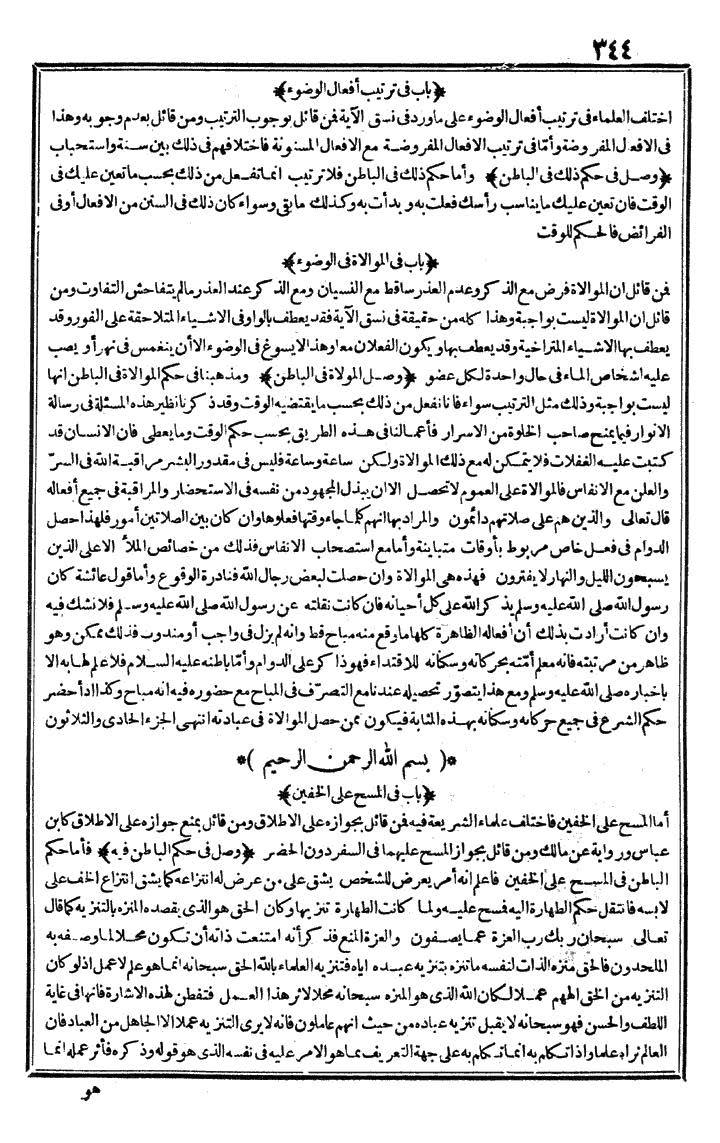 ٣٤٤
﴿باب فى ترتيب أفعال الوضوء﴾
اختلف العلماء فى ترتيب أفعال الوضوء على ماورد فى نسق الآية فمن قائل بوجوب الترتيب ومن قائل بعدم وجوبه وهذا
فى الافعال المفروضة وأمّا فى ترتيب الافعال المفروضة مع الافعال المسنونة فاختلافهم فى ذلك بين سنة واستحباب
﴿وصل فى حكم ذلك فى الباطن﴾ وأما حكم ذلك فى الباطن فلا ترتيب انما تفعل من ذلك بحسب ما تعين عليك فى
الوقت فان تعين عليك ما يناسب رأسك فعلت به وبدأت به وكذلك ما بقى وسواء كان ذلك فى السنن من الافعال أو فى
الفرائض فالحكم للوقت
﴿باب فى الموالاة فى الوضوء﴾
فمن قائل ان الموالاة فرض مع الذكر وعدم العذر ساقط مع النسيان ومع الذكر عند العذر مالم يتفاحش التفاوت ومن
قائل ان الموالاة ليست بواجبة وهذا كله من حقيقة فى نسق الآية فقد يعطف بالواو فى الاشياء المتلاحقة على الفور وقد
يعطف بها الاشياء المتراخية وقد يعطف بها ويكون الفعلان معا وهذا لا يسوغ فى الوضوء الا أن ينغمس فى نهر أو يصب
عليه اشخاص الماء فى حال واحدة لكل عضو ﴿وصل المولاة فى الباطن﴾ ومذهبنا فى حكم الموالاة فى الباطن انها
ليست بواجبة وذلك مثل الترتيب سواء فانا نفعل من ذلك بحسب ما يقتضيه الوقت وقد ذكرنا نظير هذه المسئلة فى رسالة
الانوار فيما يمنح صاحب الخلوة من الاسرار فأعمالنا فى هذه الطريق بحسب حكم الوقت وما يعطى فان الانسان قد
كتبت عليه الغفلات فلا يتمكن له مع ذلك الموالاة ولكن ساعة وساعة فليس فى مقدور البشر مراقبة الله فى السرّ
والعلن مع الانفاس فالموالاة على العموم لا تحصل الا ان يبذل المجهود من نفسه فى الاستحضار والمراقبة فى جميع أفعاله
قال تعالى والذين هم على صلاتهم دائمون والمراد بها انهم كلما جاء وقتها فعلوها وان كان بين الصلاتين أمور فلهذا حصل
الدوام فى فعل خاص مربوط بأوقات متباينة وأما مع استصحاب الانفاس فذلك من خصائص الملأ الاعلى الذين
يسبحون الليل والنهار لا يفترون فهذه هى الموالاة وان حصلت لبعض رجال الله فنادرة الوقوع وأما قول عائشة كان
رسول الله صلى الله عليه وسلم يذكر الله على كل أحيانه فان كانت نقلته عن رسول الله صلى الله عليه وسلم فلا نشك فيه
وان كانت أرادت بذلك أن أفعاله الظاهرة كلها ما وقع منه مباح قط وانه لم يزل فى واجب أو مندوب فذلك ممكن وهو
ظاهر من مرتبته فانه معلم أمّته بحركاته وسكناته للاقتداء فهو ذاكر على الدوام وأمّا باطنه عليه السلام فلا علم لها به الا
باخباره صلى الله عليه وسلم ومع هذا يتصوّر تحصيله عندنا مع التصرّف فى المباح مع حضوره فيه انه مباح وكذا اذا أحضر
حكم الشرع فى جميع حركاته وسكناته بهذه المثابة فيكون ممن حصل الموالاة فى عبادته انتهى الجزء الحادى والثلاثون
*( بسم الله الرحمن الرحيم )*
﴿باب فى المسح على الخفين﴾
أما المسح على الخفين فاختلف علماء الشريعة فيه فمن قائل بجوازه على الاطلاق ومن قائل بمنع جوازه على الاطلاق كابن
عباس ورواية عن مالك ومن قائل بجواز المسح عليهما فى السفر دون الحضر ﴿وصل فى حكم الباطن فيه﴾ فأما حكم
الباطن فى المسح على الخفين فاعلم انه أمر يعرض للشخص يشق على من عرض له انتزاعه كما يشق انتزاع الخف على
لابسه فانتقل حكم الطهارة اليه فمسح عليه ولما كانت الطهارة تنزيها وكان الحق هو الذى يقصده المنزه بالتنزيه كما قال
تعالى سبحان ربك رب العزة عما يصفون والعزة المنع فذكر أنه امتنعت ذاته أن تكون محلا لما وصفه به
الملحدون فالحق منزه الذات لنفسه ما تنزه بتنزيه عبده اياه فتنزيه العلماء بالله الحق سبحانه انما هو علم لا عمل اذ لو كان
التنزيه من الخلق الههم عملا لكان الله الذى هو المنزه سبحانه محلا لاثر هذا العمل فتفطن لهذه الاشارة فانها فى غاية
اللطف والحسن فهو سبحانه لا يقبل تنزيه عباده من حيث انهم عاملون فانه لا يرى التنزيه عملا الا الجاهل من العباد فان
العالم تراه علما واذا تكلم به انما تكلم به على جهة التعريف بما هو الامر عليه فى نفسه الذى هو قوله وذكره فأثر عمله انما
هو